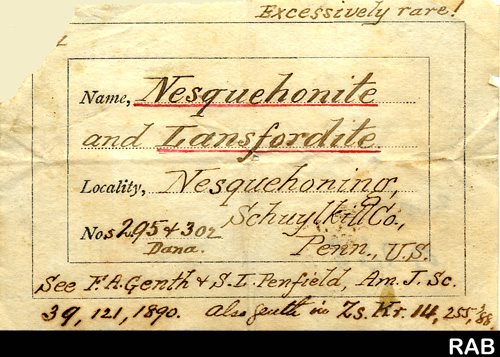 Excessively rare!
Name, Nesquehonite
and Lansfordite
Locality, Nesquehoning,
Schuylkill Co.,
Nos 295 & 302
Dana.
Penn., U.S.
See F.A. Genth & S.L. Penfield, Am. J. Sc.
39, 121, 1890. also Genth in Zs. Kr. 14, 255, '88
RAB